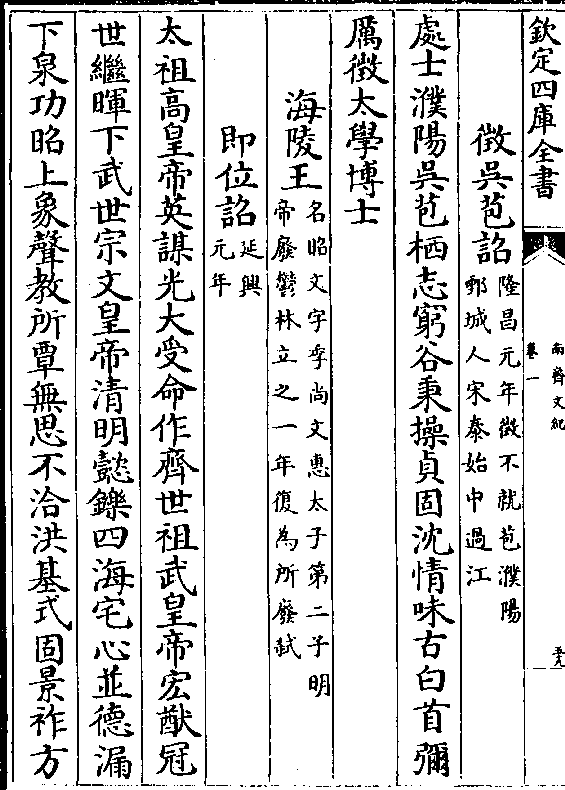 欽定四庫全書
南齊文紀
卷一
徵吳苞詔
隆昌元年徵不就苞濮陽
鄄城人宋泰始中過江
處士濮陽吳苞栖志窮谷秉操貞固沈情味古白首彌
厲徵太學博士
海陵王
名昭文字季尚文惠太子第二子明
帝廢鬱林立之一年復為所廢弒
即位詔
延興
元年
太祖高皇帝英謀光大受命作齊世祖武皇帝宏猷冠
世繼暉下武世宗文皇帝清明懿鑠四海宅心並德漏
下泉功昭上象聲教所覃無思不洽洪基式固景祚方